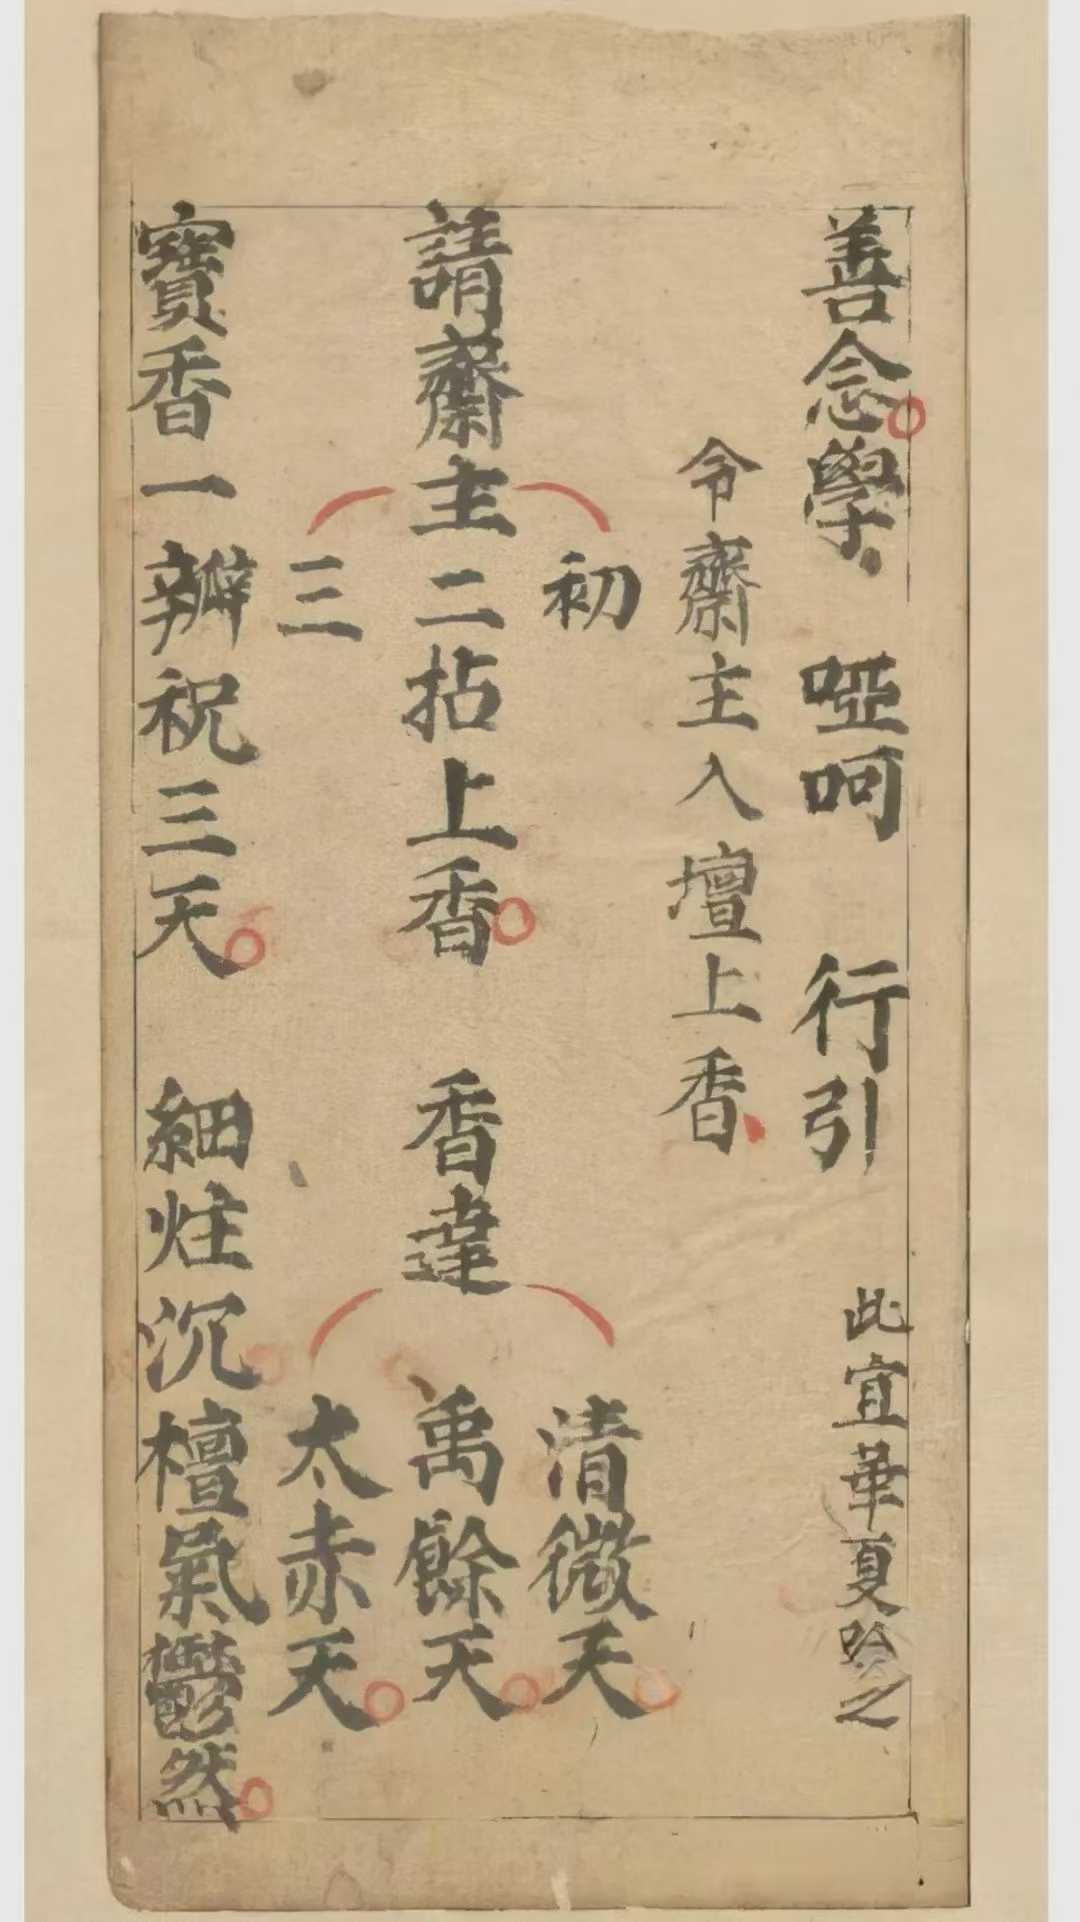 善念學 啞呵 行引 此宜華夏吟之
令齋主入壇上香
初 清微天
請齋主二拈上香 香達 禹餘天
三 太赤天
寶香一瓣祝三天 細炷沉檀氣鬱然